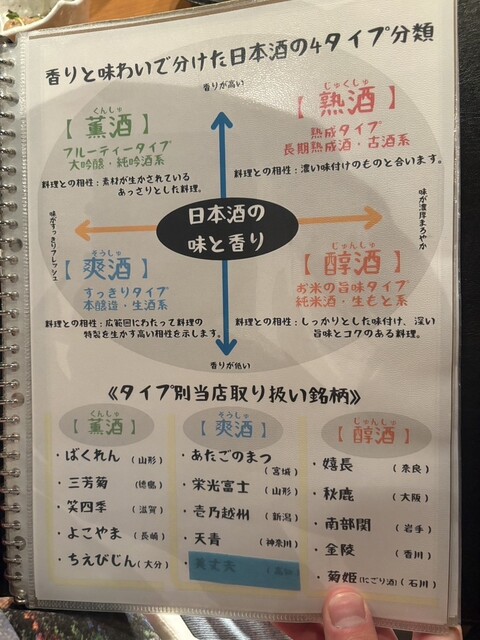 香りと味わいで分けた日本酒の4タイプ分類
香りが高い
くんしゅ
【薫酒】
フルーティータイプ
大吟醸・純吟酒系
料理との相性：素材が生かされている
あっさりとした料理。
じゅくしゅ
【熟酒】
熟成タイプ
長期熟成酒・古酒系
料理との相性：濃い味付けのものと合います。
味がすっきりフレッシュ
日本酒の
味と香り
味が濃厚まろやか
そうしゅ
【爽酒】
すっきりタイプ
本醸造・生酒系
料理との相性：広範囲にわたって料理の
特製を生かす高い相性を示します。
じゅんしゅ
【醇酒】
お米の旨味タイプ
純米酒・生もと系
料理との相性：しっかりとした味付け、深い
旨味とコクのある料理。
香りが低い
《タイプ別当店取り扱い銘柄》
くんしゅ
【薫酒】
・ばくれん（山形）
・三芳菊（徳島）
・笑四季（滋賀）
・よこやま（長崎）
・ちえびじん（大分）
そうしゅ
【爽酒】
・あたごのまつ
（宮城）
・栄光冨士（山形）
・壱乃越州（新潟）
・天青（神奈川）
・美丈夫（高知）
じゅんしゅ
【醇酒】
・嬉長（奈良）
・秋鹿（大阪）
・南部関（岩手）
・金陵（香川）
・菊姫（にごり酒）（石川）